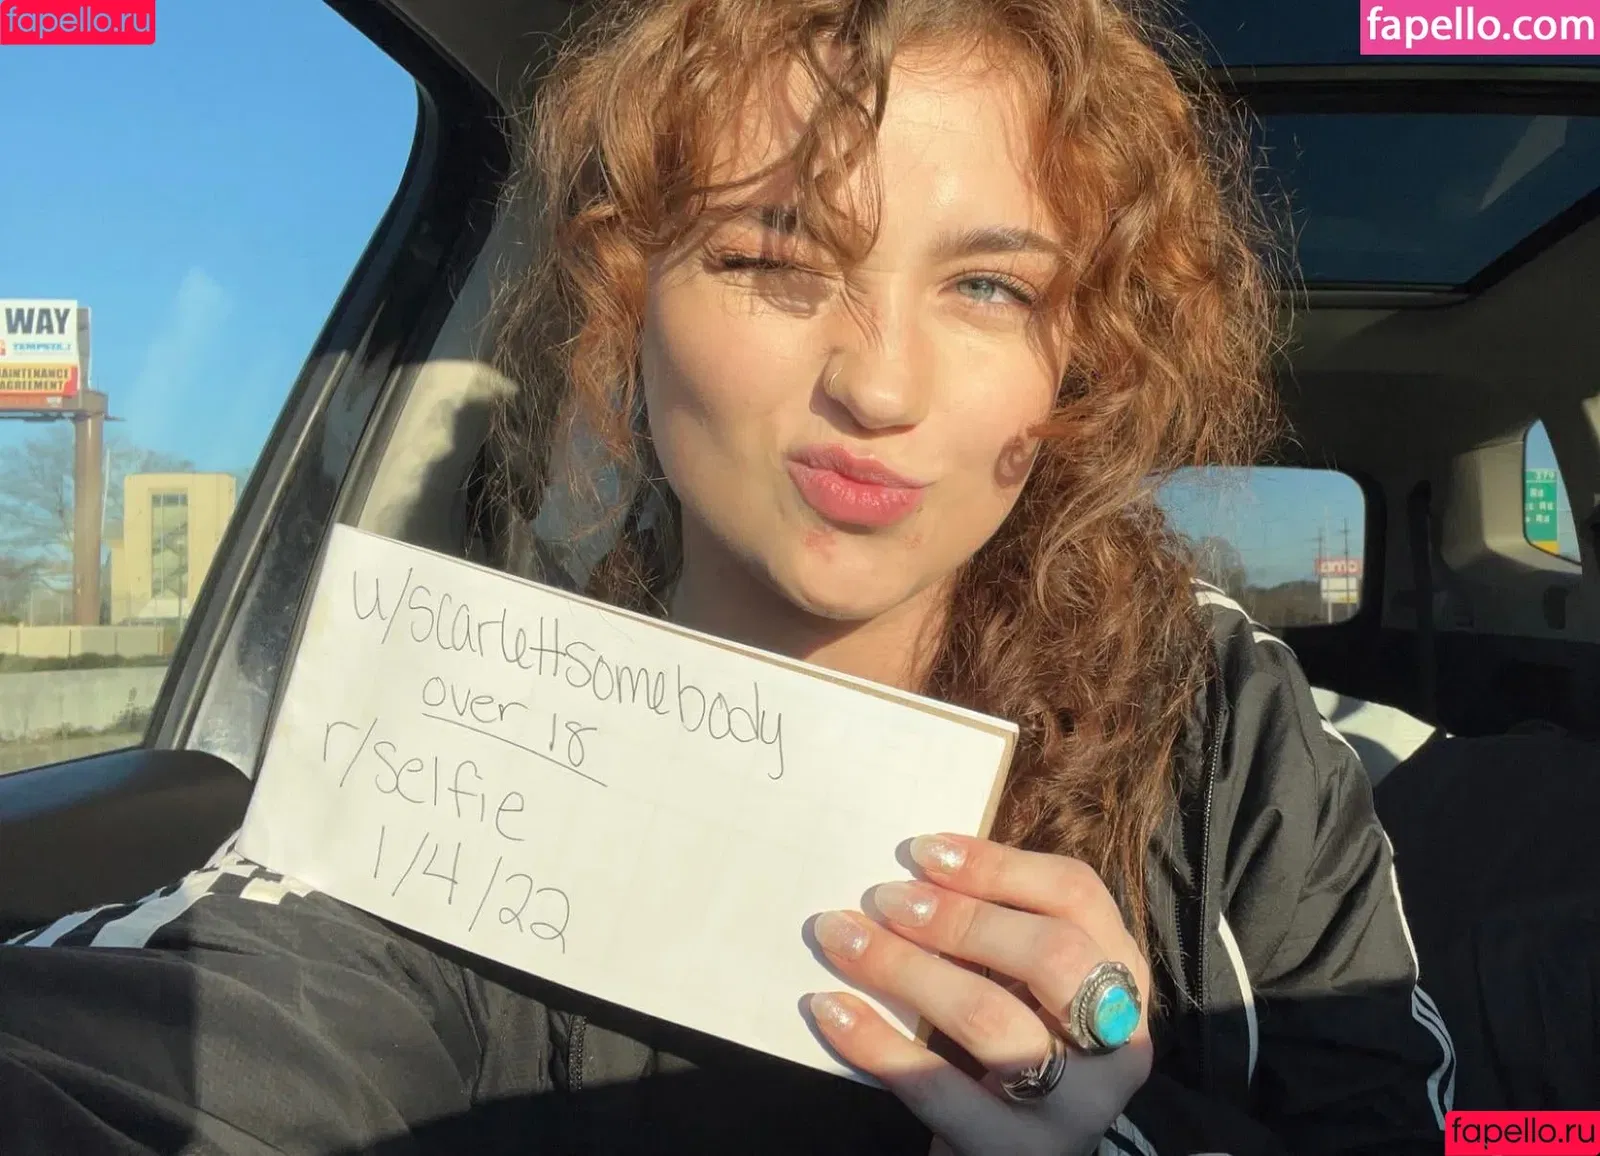 fapello.ru
fapello.com
WAY
TEMPSTAR
MAINTENANCE
AGREEMENT
u/scarlettsomebody
over 18
r/selfie
1/4/22
379
Rd
Rd
Rd
fapello.ru